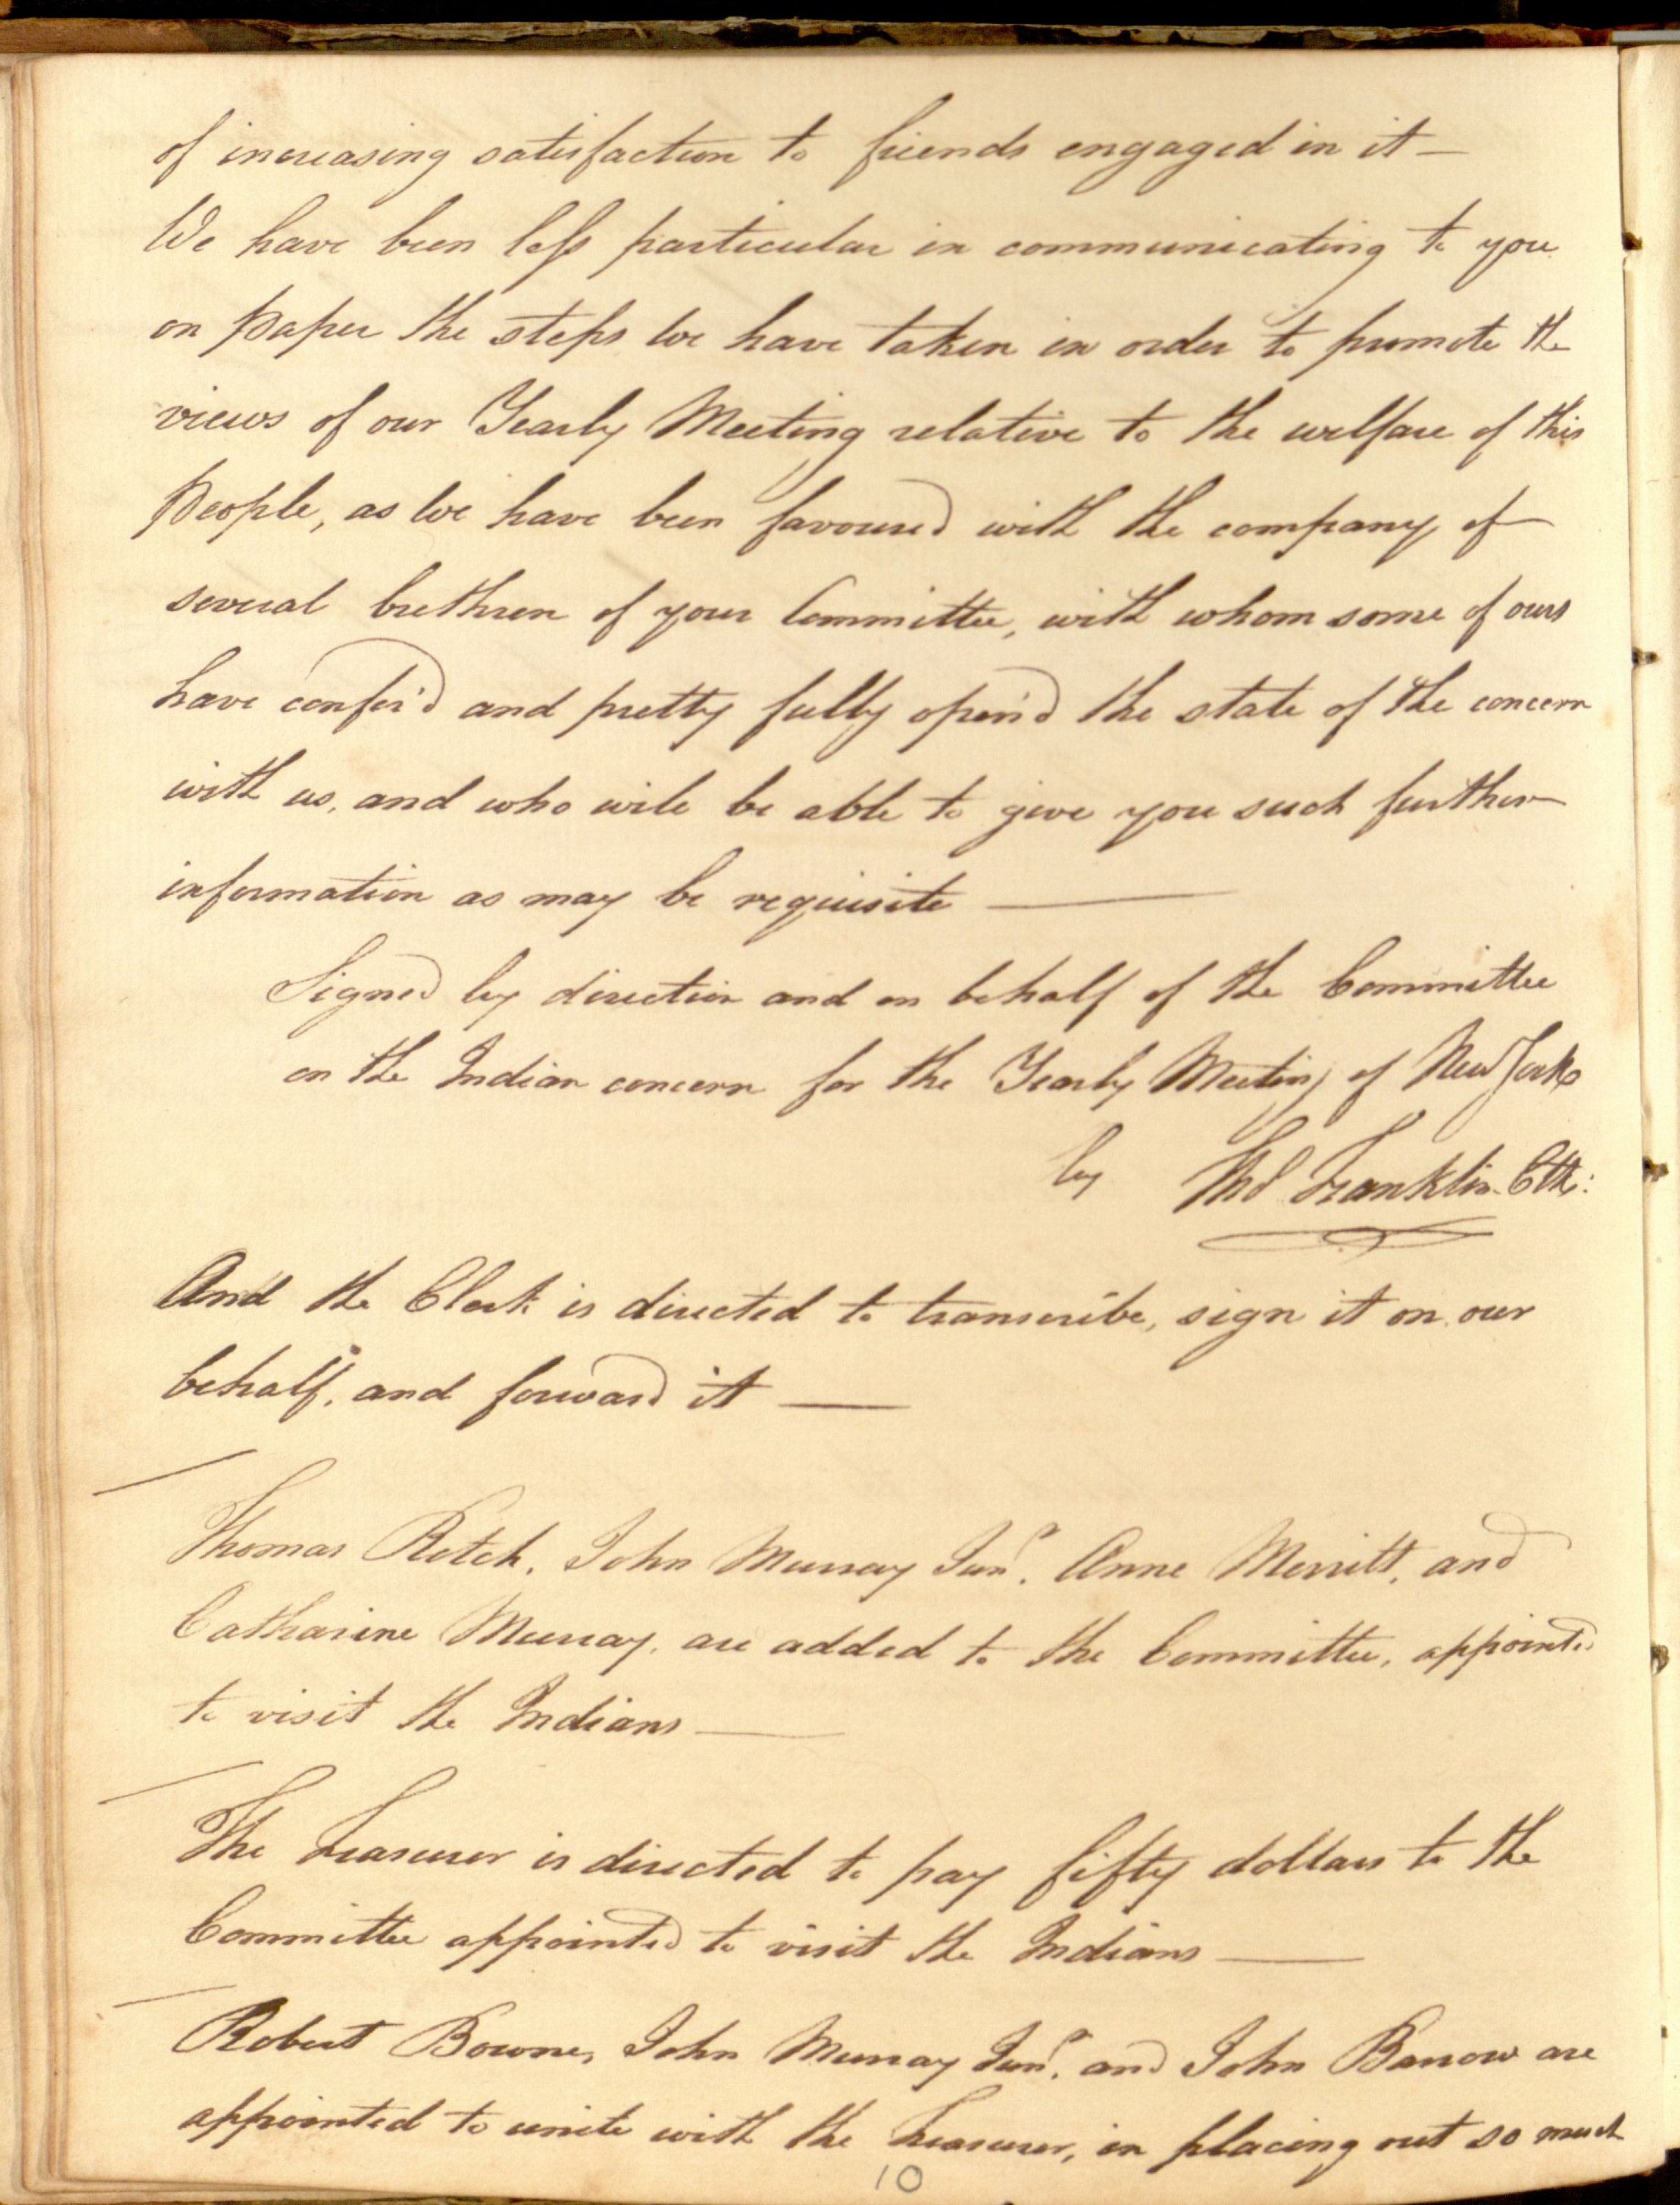 of increasing satisfaction to friends engaged in it —
We have been less particular in communicating to you
on paper the steps we have taken in order to promote the
views of our Yearly Meeting relative to the welfare of this
People, as we have been favoured with the company of
several brethren of your Committee, with whom some of ours
have confer'd and pretty fully open'd the state of the concern
with us, and who will be able to give you such further
information as may be requisite —
Signed by direction and on behalf of the Committee
on the Indian concern for the Yearly Meeting of New York
by Thos Franklin Clk:
And the Clerk is directed to transcribe, sign it on our
behalf, and forward it —
Thomas Rotch, John Murray Junr. Anne Merritt, and
Catharine Murray, are added to the Committee, appointed
to visit the Indians —
The Treasurer is directed to pay fifty dollars to the
Committee appointed to visit the Indians —
Robert Bowne, John Murray Junr. and John Barrow are
appointed to unite with the Treasurer, in placing out so much
10